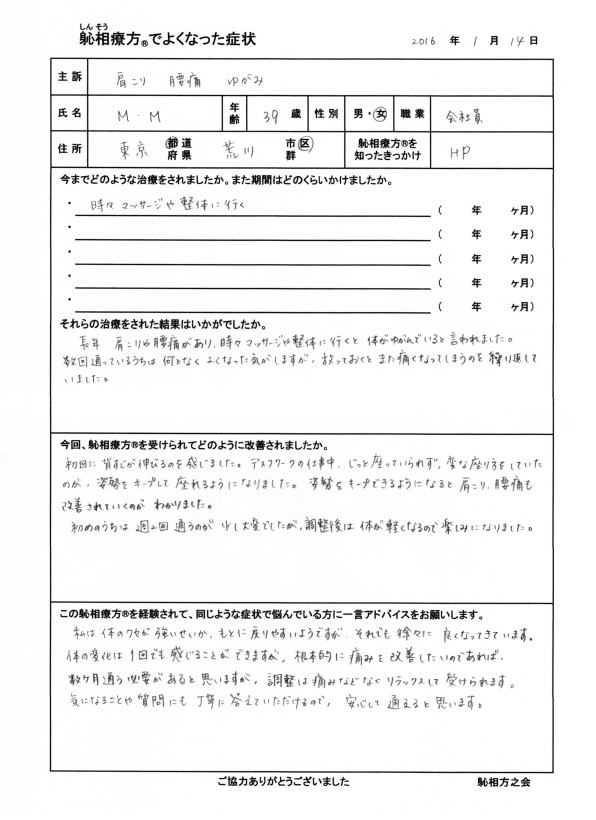 しんそう
躰相療方®でよくなった症状
2016 年 1 月 14 日
主訴 肩こり 腰痛 ゆがみ
氏名 M.M 年齢 39 歳 性別 男・女 職業 会社員
住所 東京 都道府県 荒川 市区群 躰相療方®を知ったきっかけ HP
今までどのような治療をされましたか。また期間はどのくらいかけましたか。
・ 時々マッサージや整体に行く ( 年 ヶ月)
・ ( 年 ヶ月)
・ ( 年 ヶ月)
・ ( 年 ヶ月)
・ ( 年 ヶ月)
それらの治療をされた結果はいかがでしたか。
長年 肩こりや腰痛があり、時々マッサージや整体に行くと 体がゆがんでいると言われました。
数回通っているうちは 何となく よくなった気がしますが、放っておくと また痛くなってしまうのを 繰り返して
いました。
今回、躰相療方®を受けられてどのように改善されましたか。
初回に 背すじが伸びるのを感じました。デスクワークの仕事中、じっと座っていられず、変な座り方をしていた
のが、姿勢を キープして 座れるようになりました。姿勢をキープできるようになると 肩こり、腰痛も
改善されていくのが わかりました。
初めのうちは 週2回通うのが 少し大変でしたが、調整後は 体が軽くなるので楽しみになりました。
この躰相療方®を経験されて、同じような症状で悩んでいる方に一言アドバイスをお願いします。
私は 体のクセが 強いせいか、もとに戻りやすいようですが、それでも 徐々に 良くなってきています。
体の変化は 1回でも 感じることが できますが、根本的に 痛みを 改善したいのであれば、
数ヶ月通う必要があると思いますが、調整は痛みなどなく リラックスして 受けられます。
気になることや 質問にも 丁寧に 答えていただけるので、安心して 通えると思います。
ご協力ありがとうございました
躰相方之会